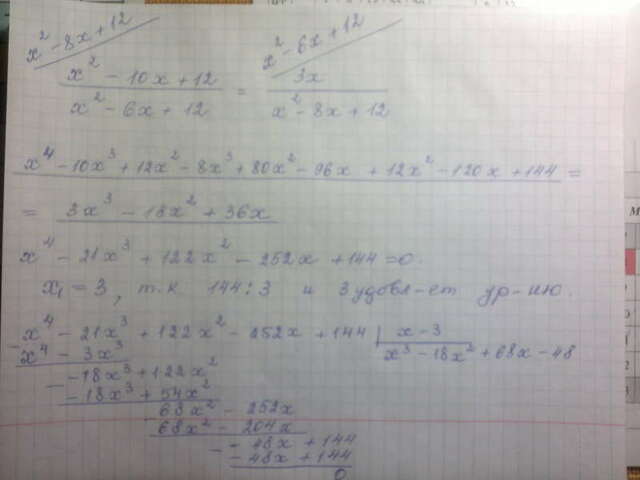 x² - 8x + 12
x² - 6x + 12
x² - 10x + 12 / x² - 6x + 12 = 3x / x² - 8x + 12
x⁴ - 10x³ + 12x² - 8x³ + 80x² - 96x + 12x² - 120x + 144 =
= 3x³ - 18x² + 36x
x⁴ - 21x³ + 122x² - 252x + 144 = 0.
x₁ = 3, т.к 144:3 и 3 удовл-ет ур-ию.
x⁴ - 21x³ + 122x² - 252x + 144 | x - 3
x⁴ - 3x³ x³ - 18x² + 68x - 48
- 18x³ + 122x²
- 18x³ + 54x²
68x² - 252x
68x² - 204x
- 48x + 144
- 48x + 144
0
M